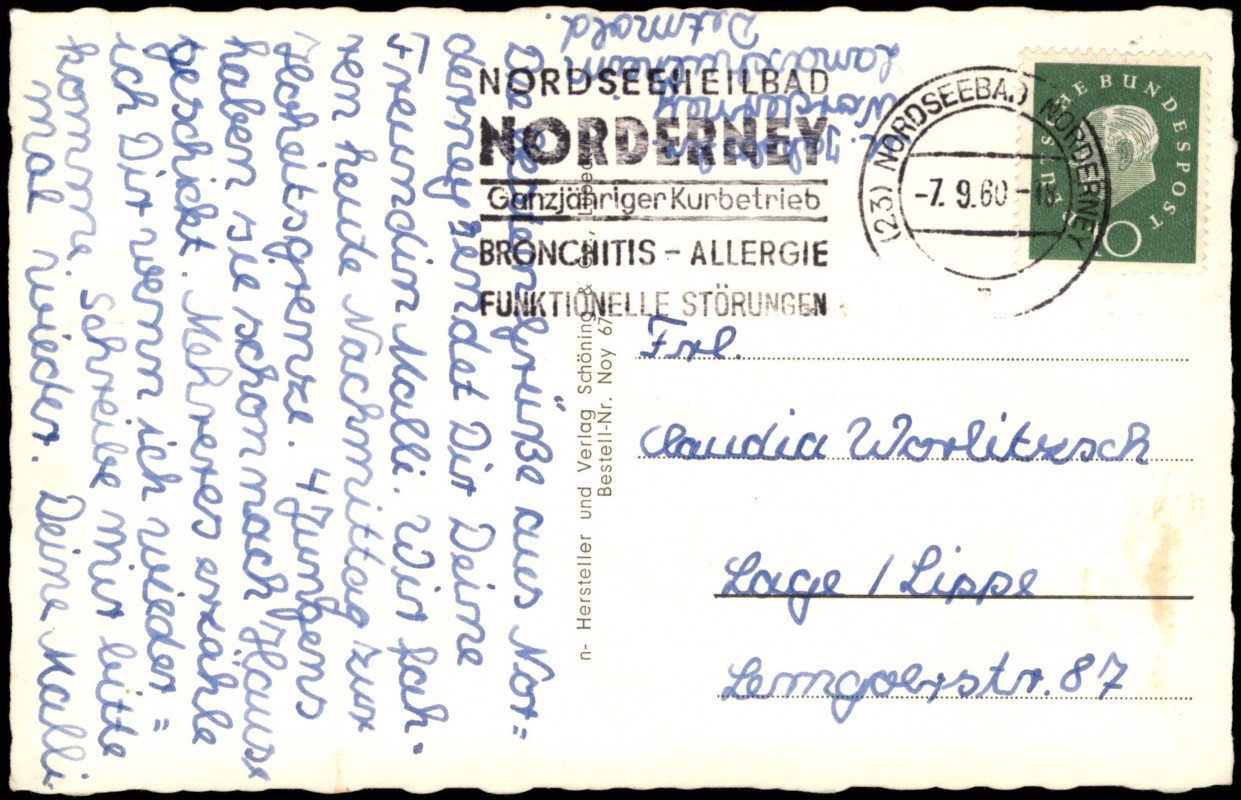 NORDSEEHEILBAD
NORDERNEY
Ganzjähriger Kurbetrieb
BRONCHITIS – ALLERGIE
FUNKTIONELLE STÖRUNGEN
(23) NORDSEEBAD NORDERNEY
-7.9.60-18
DEUTSCHE BUNDESPOST
10
Norderney
Landschulheim
Detmold.
Grüße aus Nor=
derney sendet Dir Deine
Freundin Malli. Wir fah-
ren heute Nachmittag zur
Hoheitsgrenze. 4 Jungens
haben sie schon nach Hause
geschickt. Mehreres erzähle
ich Dir wenn ich wieder=
komme. Schreibe mir bitte
mal wieder. Deine Malli
n- Hersteller und Verlag Schöning & Co., Lübeck
Bestell-Nr. Noy 67
Frl.
Claudia Worlitzsch
Lage / Lippe
Lemgoerstr. 87